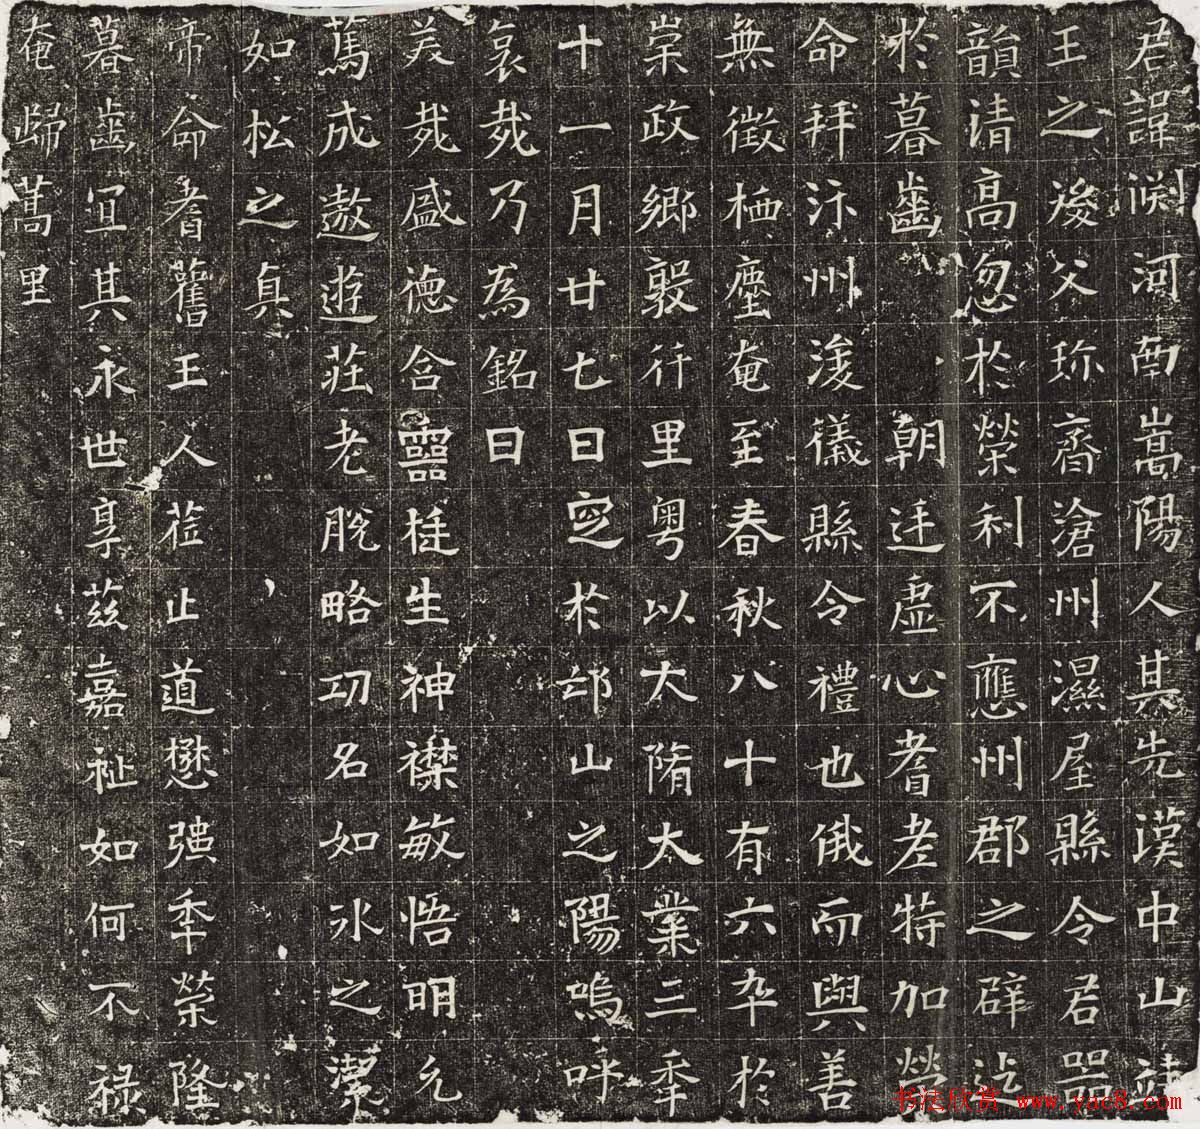 君諱 河南嵩陽人其先漢中山靖
王之後父珎齊滄州濕屋縣令君器
韻清高忽於榮利不應州郡之辟迄
於暮齒朝迋虛心耆老特加榮
命拜汴州浚儀縣令禮也俄而與善
無徵栖塵奄至春秋八十有六卒於
崇政鄉敦行里粤以大隋大業三年
十一月廿七日窆於邙山之陽嗚呼
哀哉乃為銘曰
美哉盛德含靈挺生神襟敏悟明允
篤成遨遊莊老脫略功名如氷之潔
如松之真
帝命耆舊王人莅止道懋強秊榮隆
暮齒宜其永世享茲嘉祉如何不祿
奄歸蒿里
书法欣赏 www.yac8.com